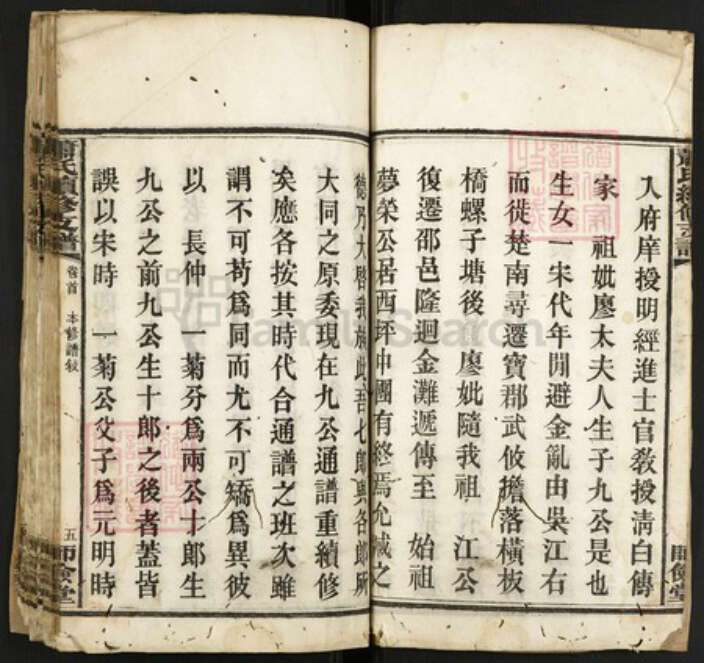 入府庠授明經進士官敎授淸白傳
家　祖妣廖太夫人生子九公是也
生女一宋代年閒避金亂由吳江右
而徙楚南尋遷寶郡武攸擔落橫板
橋螺子塘後　廖妣隨我祖　江公
復遷邵邑隆迴金灘遞傳至　始祖
夢榮公居西坪中團有終焉允臧之
乃大啓我族此吾七郎與各郎所
大同之原委現在九公通譜重續修
矣應各按其時代合通譜之班次雖
謂不可苟爲同而尤不可矯爲異彼
以　長仲　一菊分爲兩公十郎生
九公之前九公生十郎之後者蓋皆
誤以宋時　一菊公父子爲元明時
蕭氏續修支譜
卷首　本修譜敍
五
師儉堂
蕭氏續修支譜
師儉堂